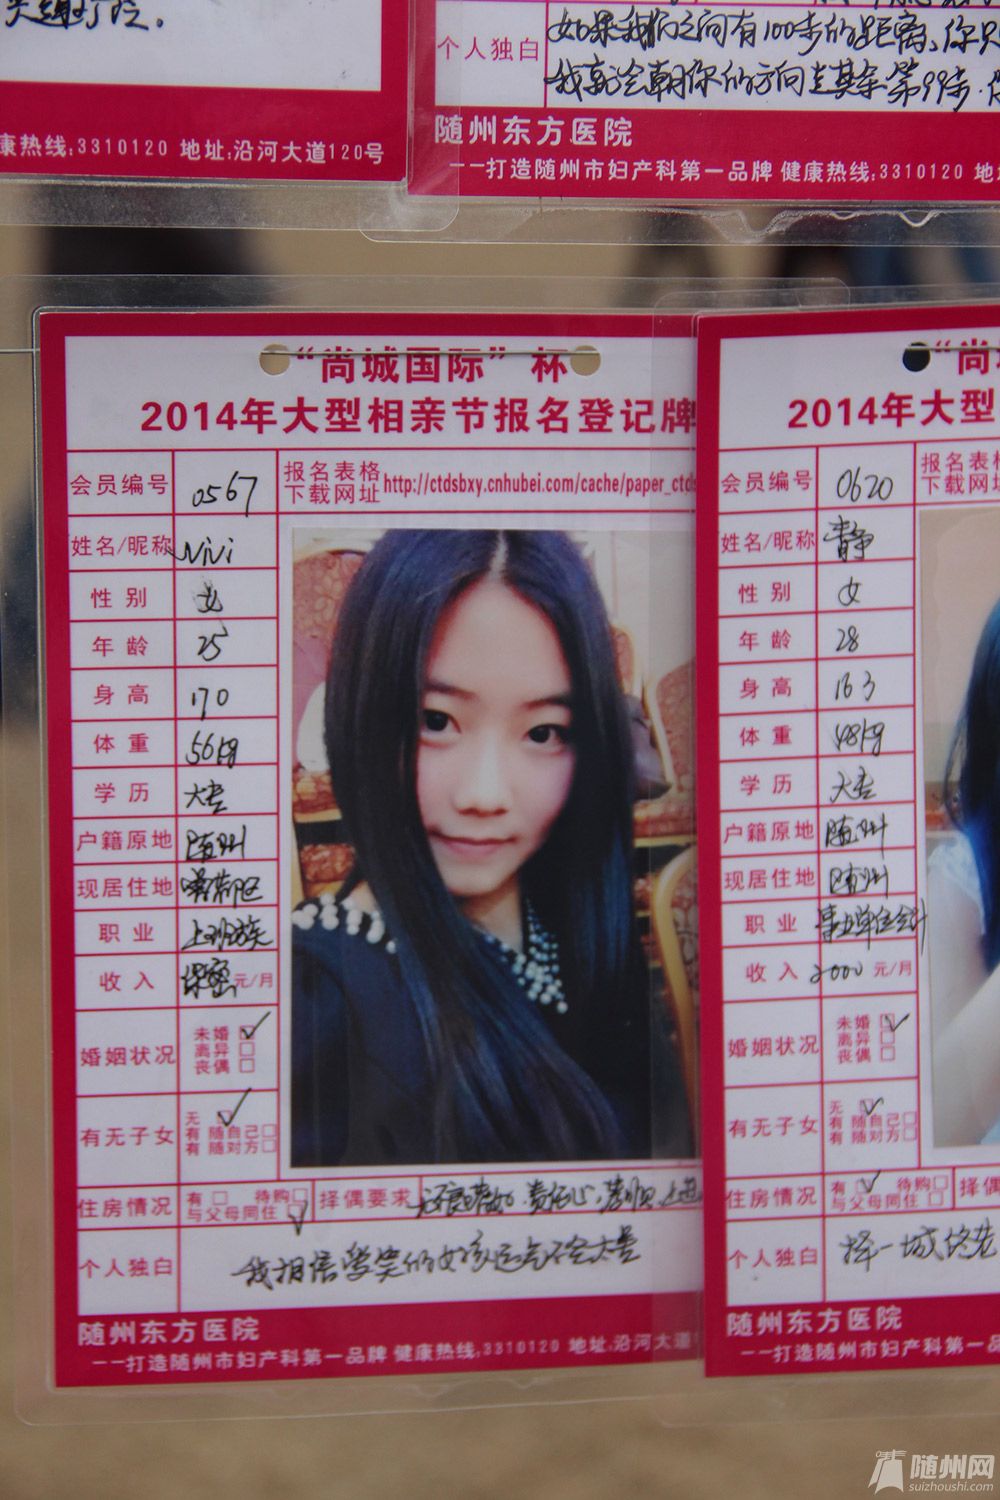 个人独白
如果我们之间有100步的距离、你只
我就会朝你的方向走其余第99步.
康热线:3310120 地址:沿河大道120号
随州东方医院
——打造随州市妇产科第一品牌 健康热线:3310120 地
“尚城国际”杯
2014年大型相亲节报名登记牌
会员编号 0567
报名表格
下载网址
http://ctdsbxy.cnhubei.com/cache/paper_ctds
姓名/昵称 ViVi
性别 女
年龄 25
身高 170
体重 56kg
学历 大专
户籍原地 随州
现居住地 曾都区
职业 上班族
收入 保密 元/月
婚姻状况
未婚
离异
丧偶
有无子女
无
有 随自己
有 随对方
住房情况
有 待购
与父母同住
择偶要求
个人独白 我相信爱笑的女孩运气不会太差
随州东方医院
——打造随州市妇产科第一品牌 健康热线:3310120 地址:沿河大道
“尚
2014年大型
会员编号 0620
报名表格
下载网址
姓名/昵称 静
性别 女
年龄 28
身高 163
体重 48kg
学历 大专
户籍原地 随州
现居住地 随州
职业 事业单位会计
收入 2000 元/月
婚姻状况
未婚
离异
丧偶
有无子女
无
有 随自己
有 随对方
住房情况
有 待购
与父母同住
择偶
个人独白 择一城终老
随州东方医院
——打造随州市妇产科第一品牌
随州网
suizhoushi.com